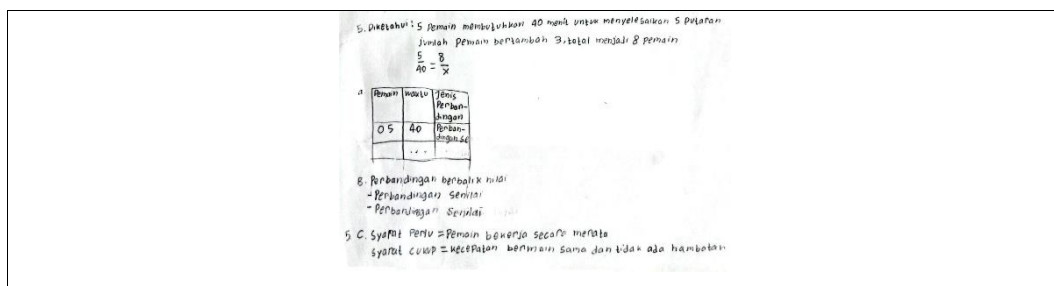 5. Diketahui : 5 Pemain membutuhkan 40 menit untuk menyelesaikan 5 putaran
Jumlah pemain bertambah 3, total menjadi 8 pemain
5/40 = 8/x
a Pemain waktu Jenis Perban-dingan
05 40 Perban-dingan se
...
B. Perbandingan berbalik nilai
- Perbandingan senilai
- Perbandingan Senilai
5 C. Syarat Perlu = Pemain bekerja secara merata
Syarat cukup = kecepatan bermain sama dan tidak ada hambatan